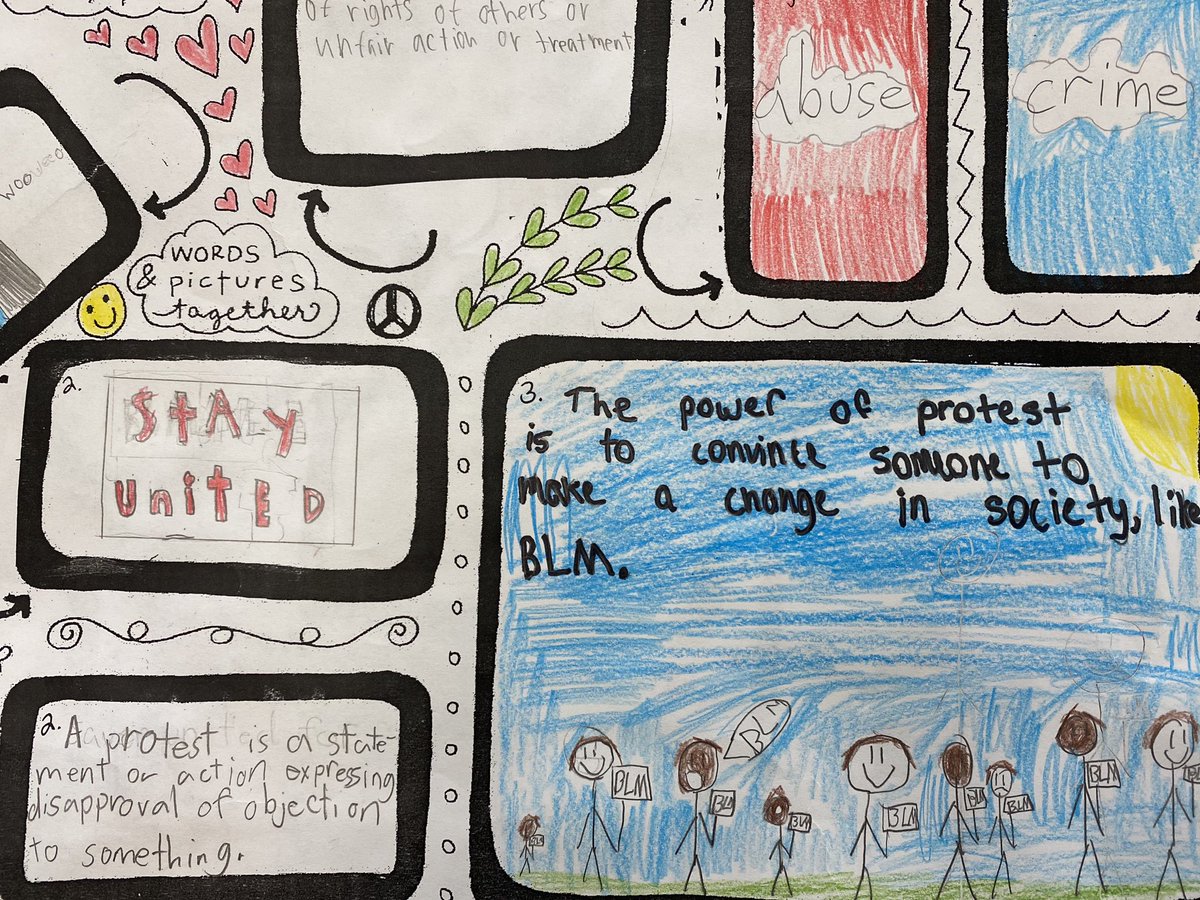 of rights of others or
unfair action or treatment
abuse
crime
woo
WORDS
& pictures
together
2.
STAY
UNITED
3. The power of protest
is to convince someone to
make a change in society, like
BLM.
2. A protest is a state-
ment or action expressing
disapproval of objection
to something.
BLM
BLM
BLM
BLM
BLM
BLM
BLM
BLM
BLM